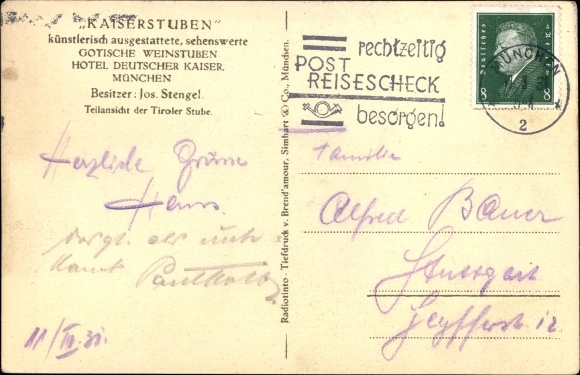 „KAISERSTUBEN"
künstlerisch ausgestattete, sehenswerte
GOTISCHE WEINSTUBEN
HOTEL DEUTSCHER KAISER,
MÜNCHEN
Besitzer: Jos. Stengel.
Teilansicht der Tiroler Stube.
Herzliche Grüsse
Hans.
Radiotinto-Tiefdruck v. Brend'amour, Simhart & Co., München.
rechtzeitig
POST
REISESCHECK
besorgen!
Deutsches
8 8
MÜNCHEN
2
Familie
Alfred Bauer
Stuttgart